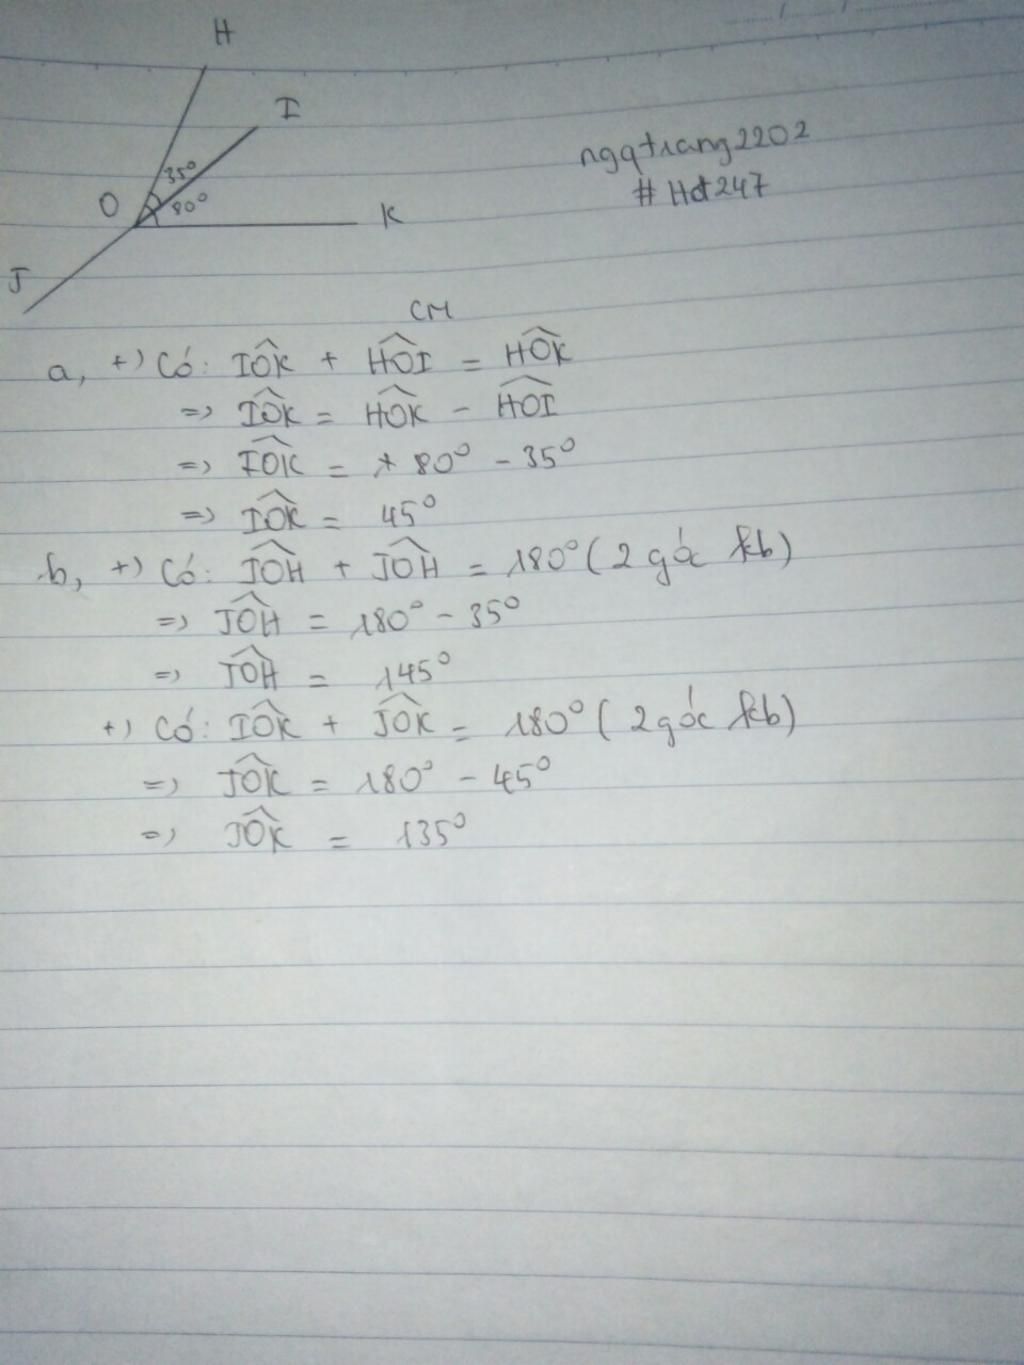 H
I
35°
O
80°
K
J
ngqtrang2202
# Hd247
CM
a, +) Có: IÔK + HÔI = HÔK
=> IÔK = HÔK - HÔI
=> IÔK = 80° - 35°
=> IÔK = 45°
b, +) Có: IÔH + JÔH = 180° (2 góc kb)
=> JÔH = 180° - 35°
=> JÔH = 145°
+) Có: IÔK + JÔK = 180° (2 góc kb)
=> JÔK = 180° - 45°
=> JÔK = 135°